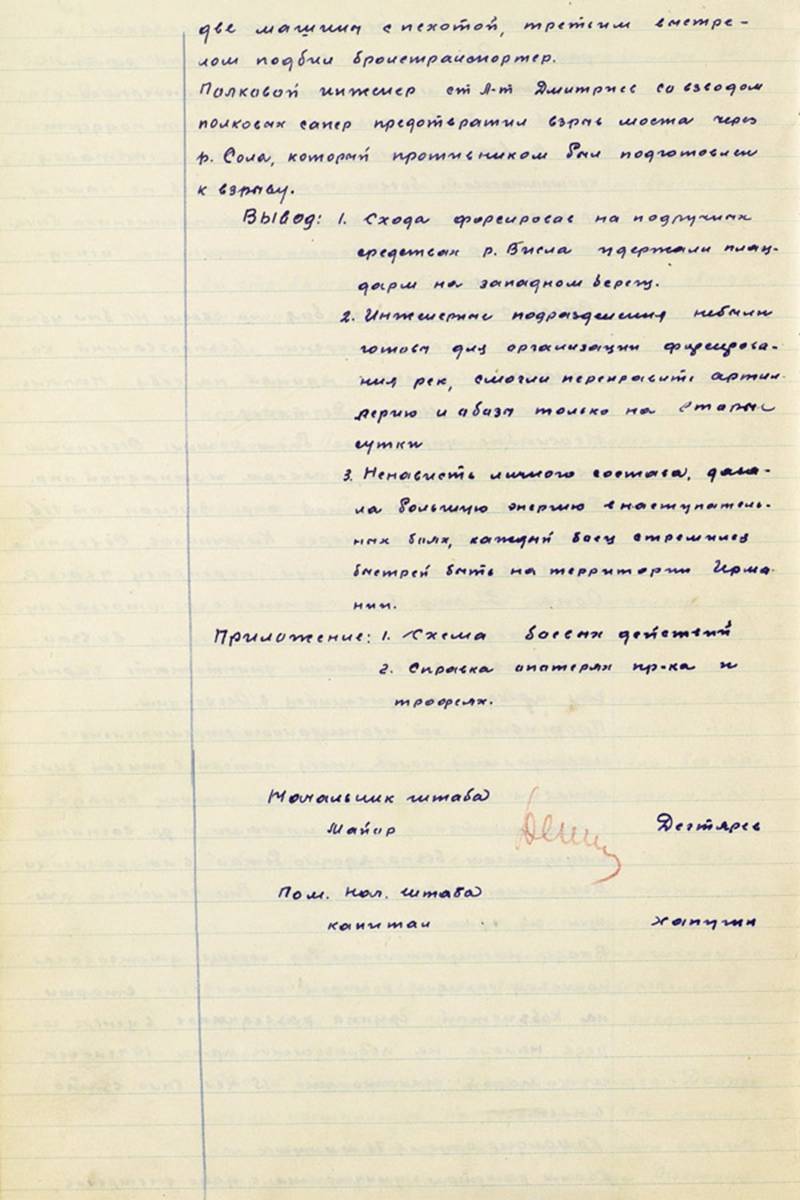 две машины с пехотой, третьим выстре-
лом подбил бронетранспортер.
Полковой инженер ст Л-т Дмитриев со взводом
полковых сапер предотвратил взрыв моста через
р. Сола, который противником был подготовлен
к взрыву.
Вывод: 1. Схода форсировав на подручных
средствах р. Висла удержали плац-
дарм на западном берегу.
2. Инженерные подразделения небыли
готовы для организации форсирова-
ния рек, смогли переправить артил-
лерию и абазы только на вторые
сутки
3. Ненависть личного состава, дава-
ла большую энергию в наступатель-
ных боях, каждый боец стремился
быстрей быть на территории Герма-
нии.
Приложение: 1. Схема боевых действий
2. Справка опотерях пр-ка и
трофеях.
Начальник штаба
Майор Дегтярев
Пом. Нач. штаба
капитан